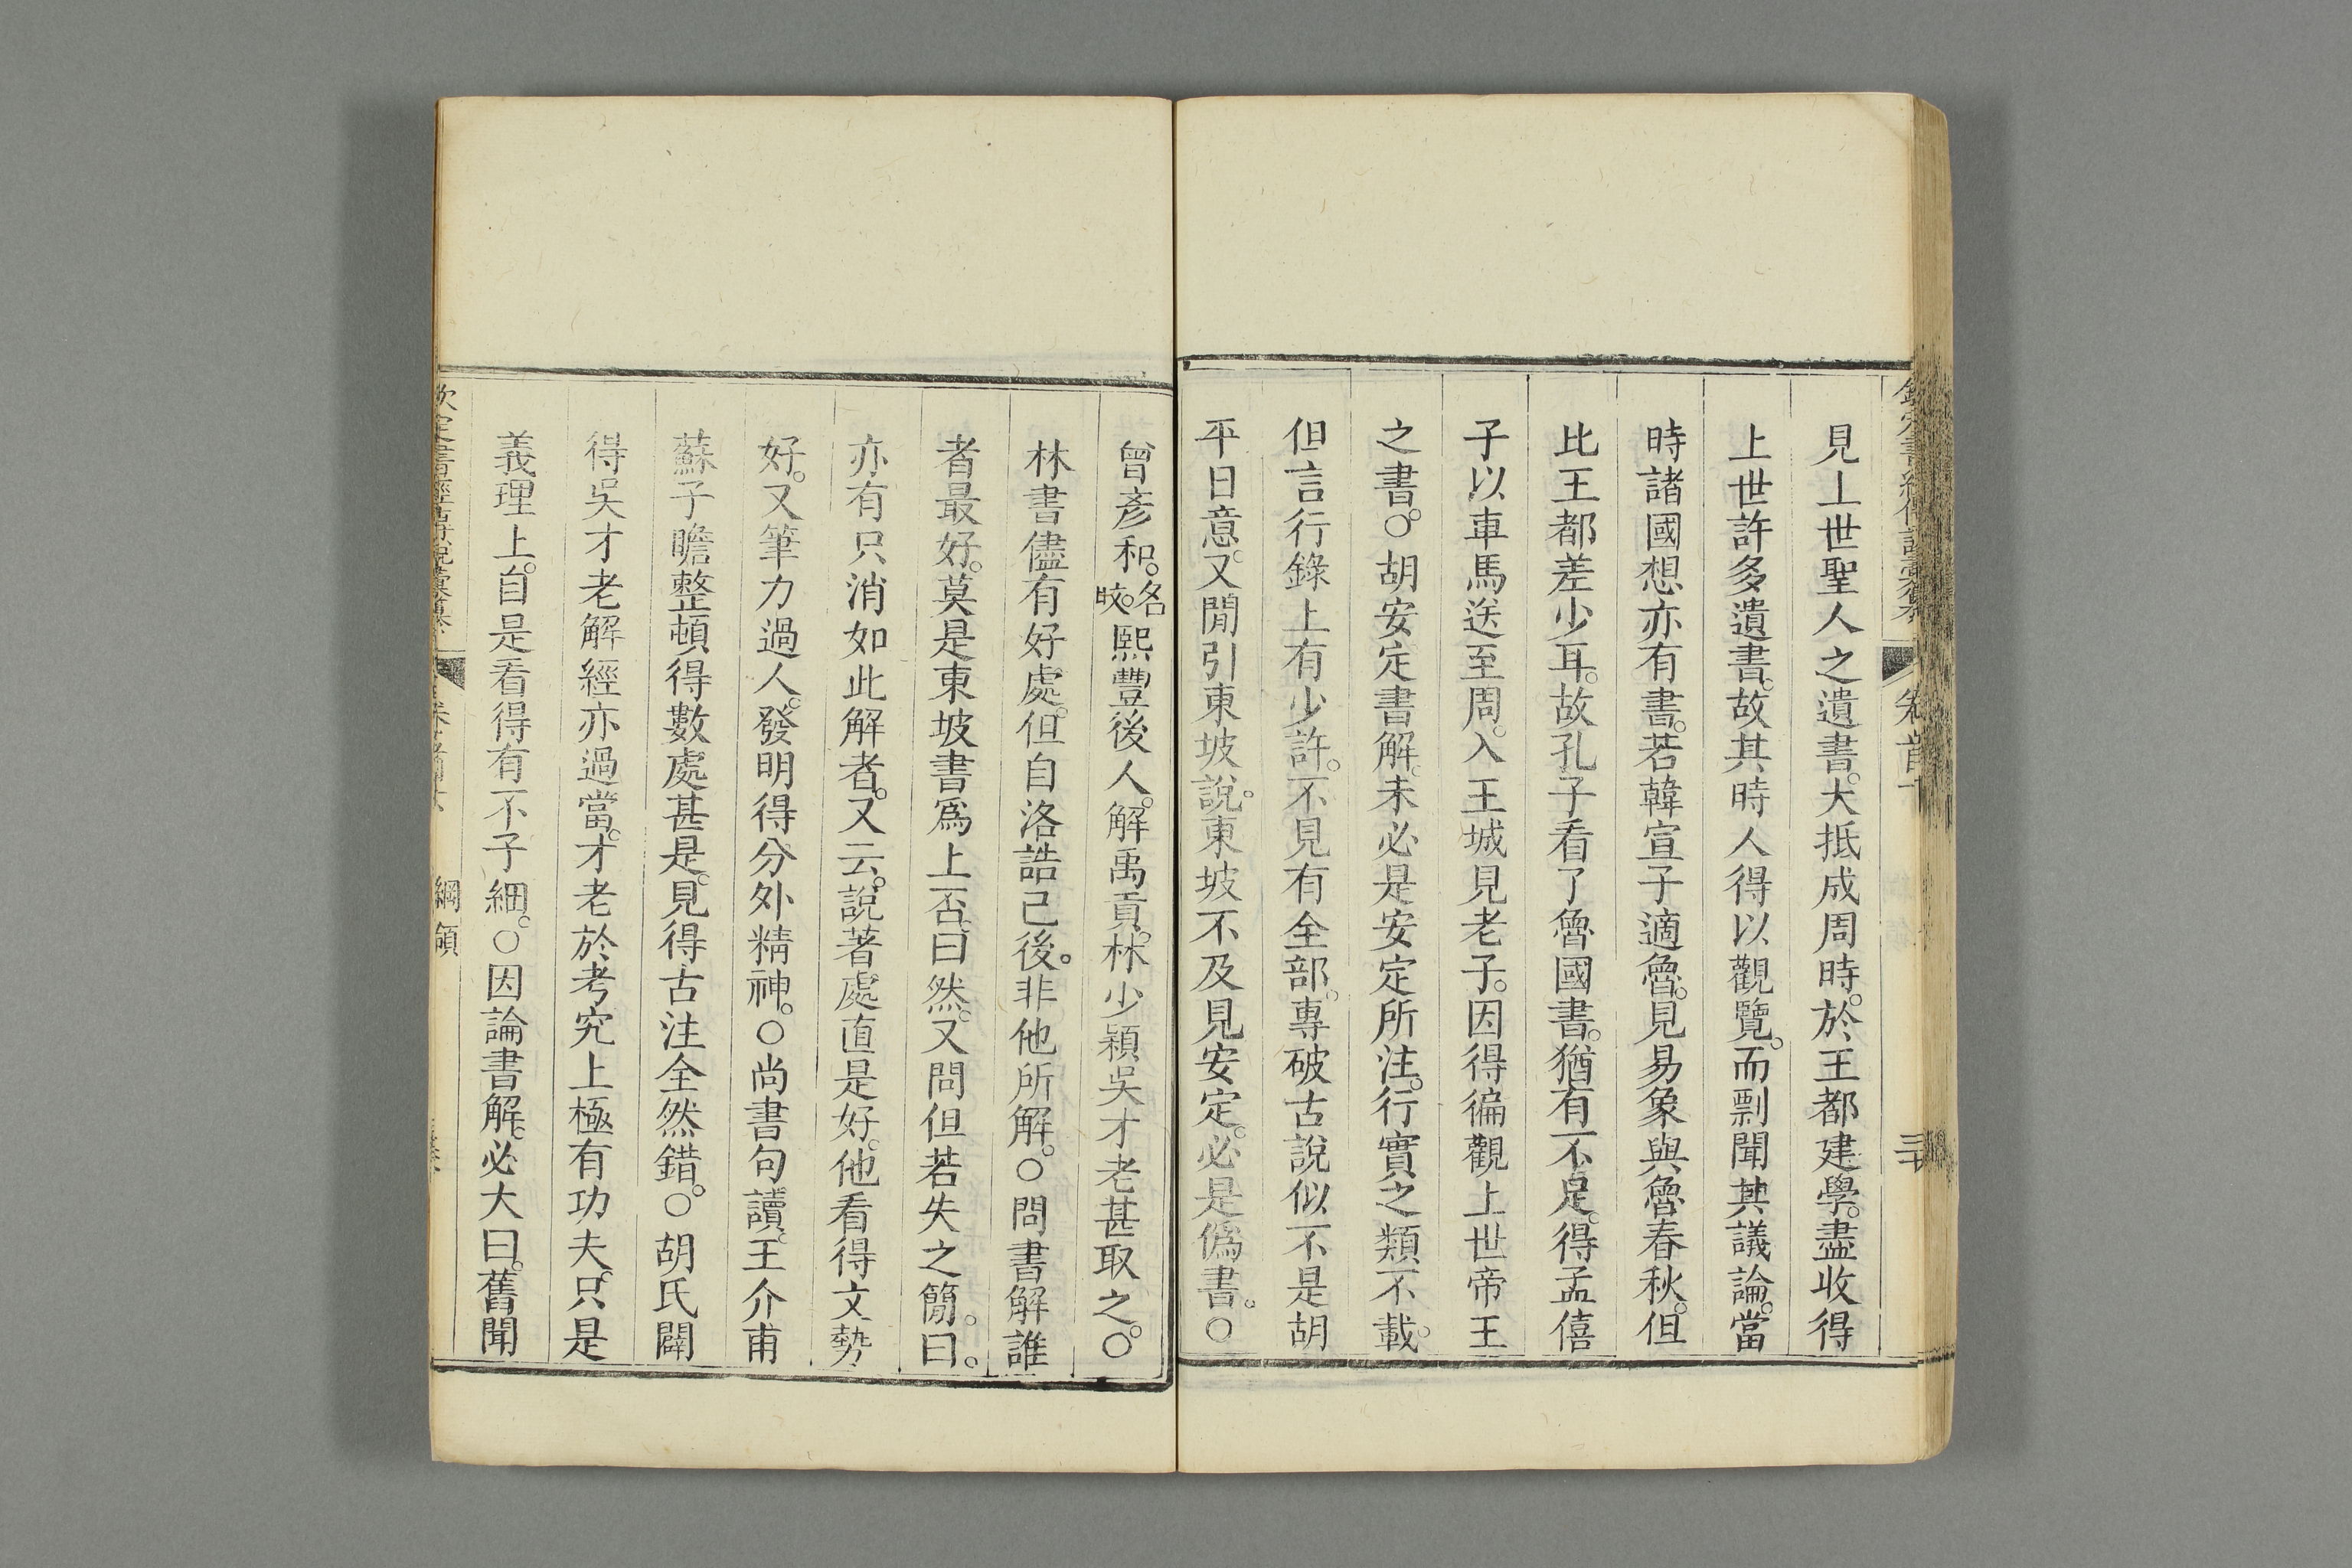 見上世聖人之遺書。大抵成周時。於王都建學。盡收得
上世許多遺書。故其時人得以觀覽。而剽聞其議論。當
時諸國想亦有書。若韓宣子適魯。見易象與魯春秋。但
比王都差少耳。故孔子看了魯國書。猶有不足。得孟僖
子以車馬送至周。入王城見老子。因得徧觀上世帝王
之書。○胡安定書解。未必是安定所注。行實之類不載。
但言行錄上有少許。不見有全部。專破古說似不是胡
平日意。又閒引東坡說。東坡不及見安定。必是僞書。○
曾彥和。名旼。熙豐後人。解禹貢。林少穎吳才老甚取之。○
林書儘有好處。但自洛誥已後。非他所解。○問書解誰
者最好。莫是東坡書爲上否。曰然。又問但若失之簡。曰。
亦有只消如此解者。又云。說著處直是好。他看得文勢
好。又筆力過人。發明得分外精神。○尚書句讀。王介甫
蘇子瞻整頓得數處甚是。見得古注全然錯。○胡氏闢
得吳才老解經亦過當。才老於考究上極有功夫。只是
義理上。自是看得有不子細。○因論書解。必大曰。舊聞
綱領